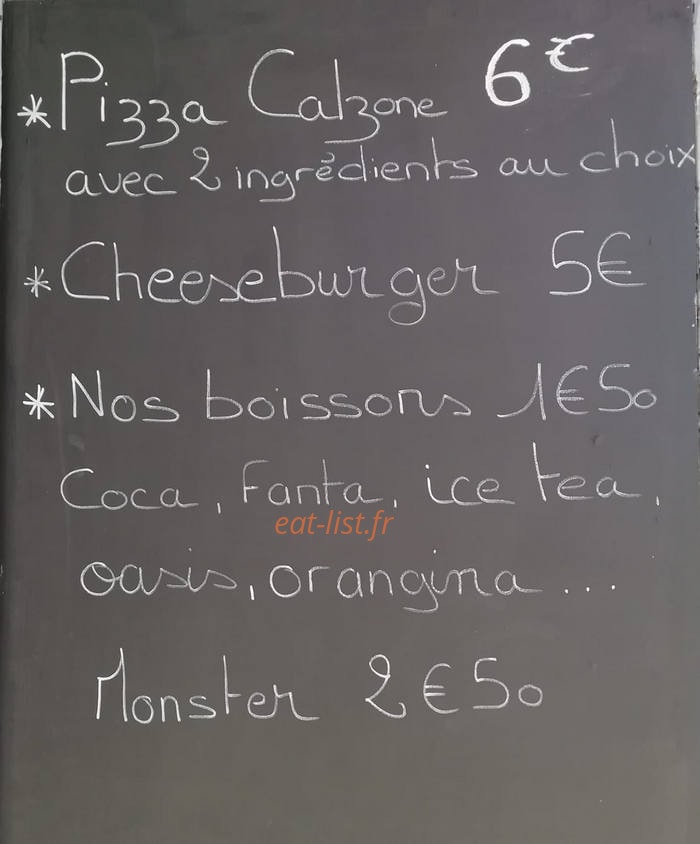 * Pizza Calzone 6€
avec 2 ingrédients au choix
* Cheeseburger 5€
* Nos boissons 1€50
Coca, Fanta, ice tea,
eat-list.fr
oasis, orangina...
Monster 2€50